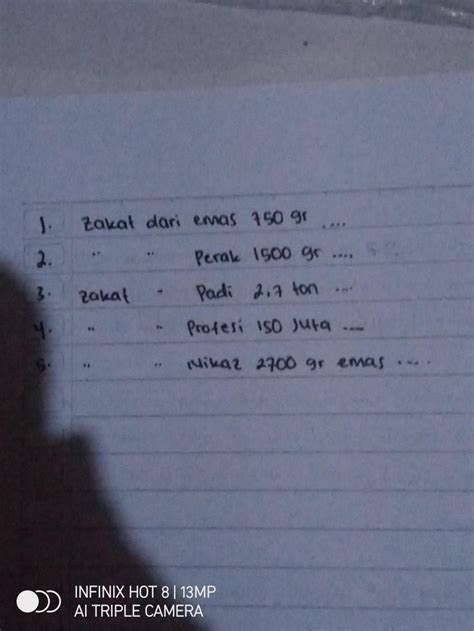 1. Zakat dari emas 750 gr ....
2. " " Perak 1500 gr ....
3. Zakat " Padi 2,7 ton ...
4. " " Profesi 150 Juta ....
5. " " Nikaz 2700 gr emas ....
INFINIX HOT 8 | 13MP
AI TRIPLE CAMERA